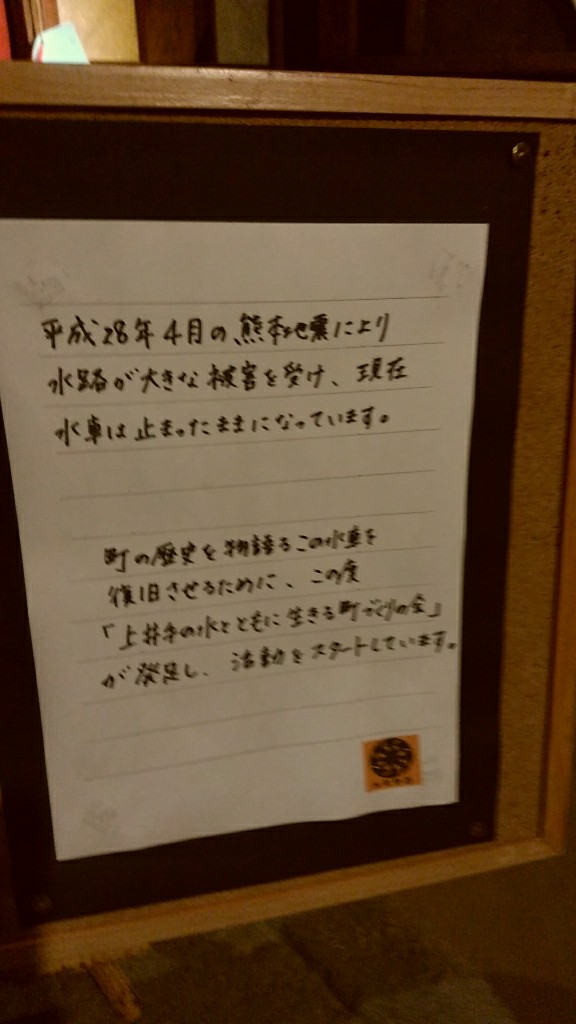 平成28年4月の、熊本地震により
水路が大きな被害を受け、現在
水車は止まったままになっています。
町の歴史を物語るこの水車を
復旧させるために、この度
「上井手の水とともに生きる町づくりの会」
が発足し、活動をスタートしています。